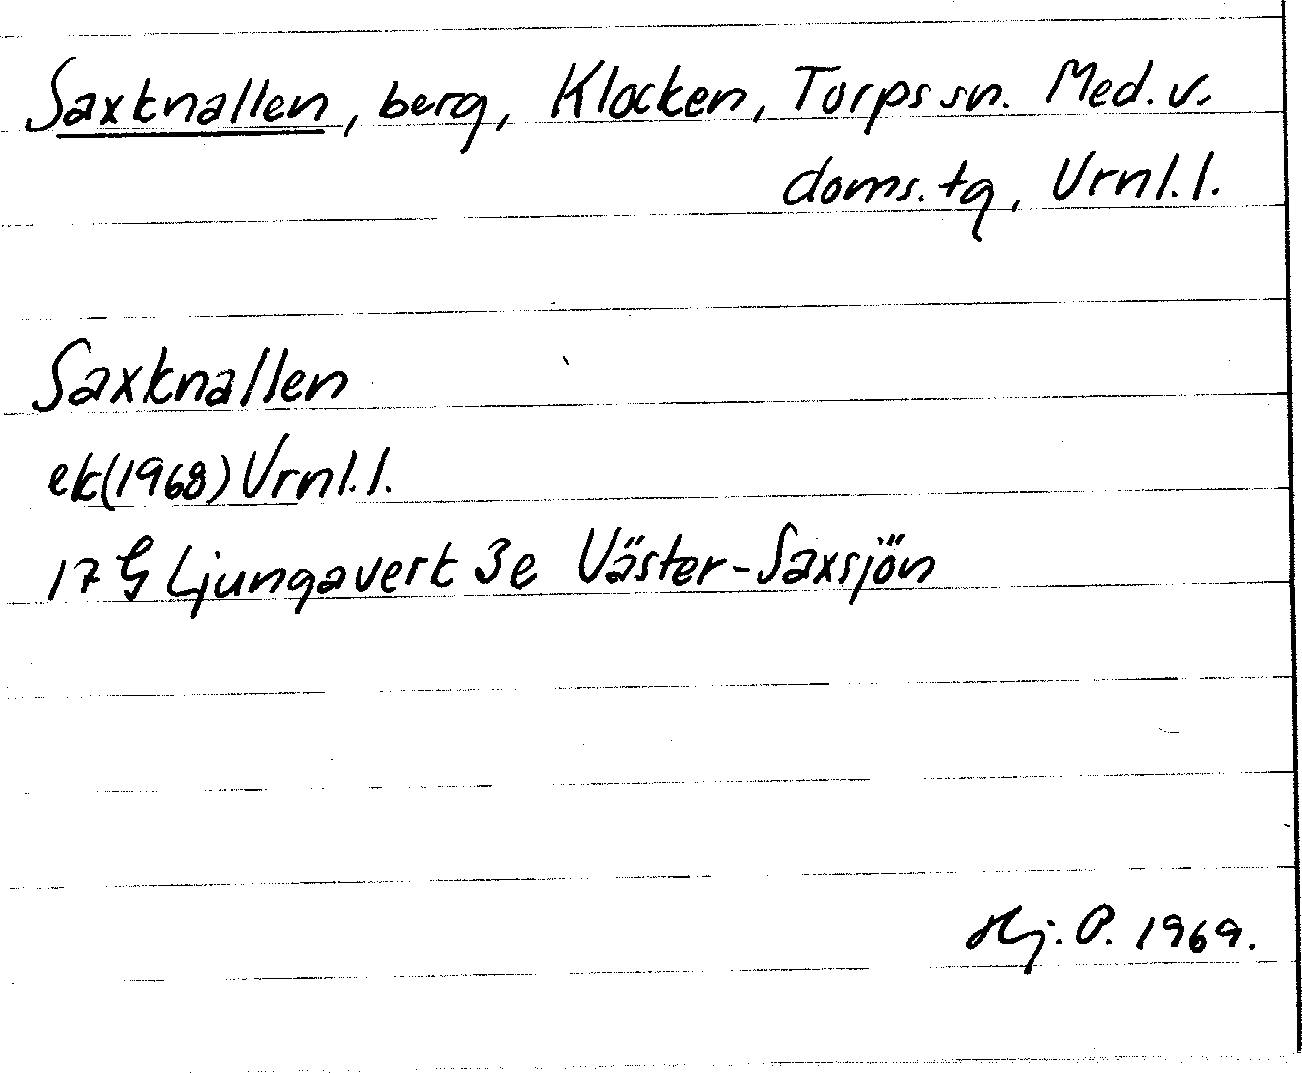 Saxknallen, berg, Klocken, Torps sn. Med. v.
doms. tg, Vrnl. l.
Saxknallen
ek(1968) Vrnl. l.
17 G Ljungaverk 3e Väster-Saxsjön
Hj. P. 1969.